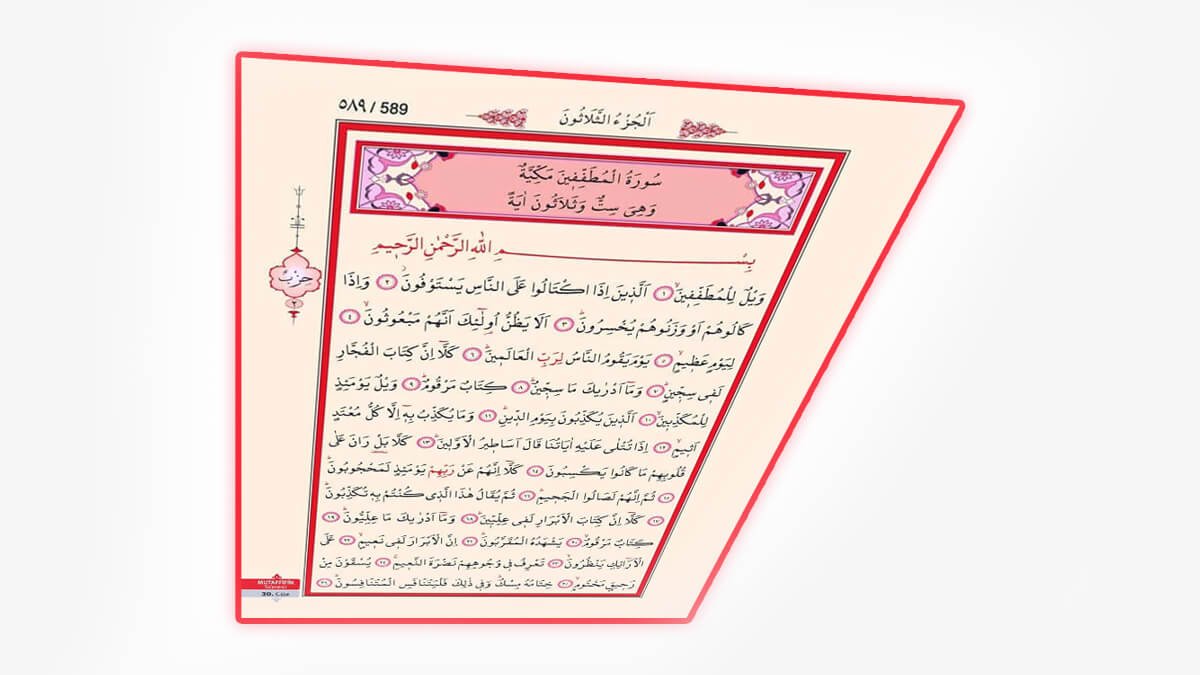 ٥٨٩ / 589
اَلْجُزْءُ الثَّلَاثُونَ
سُورَةُ الْمُطَفِّفِينَ مَكِّيَّةٌ
وَهِىَ سِتٌّ وَثَلَاثُونَ اٰيَةً
بِسْمِ اللّٰهِ الرَّحْمٰنِ الرَّحٖيمِ
وَيْلٌ لِلْمُطَفِّفٖينَۙ ١ اَلَّذٖينَ اِذَا اكْتَالُوا عَلَى النَّاسِ يَسْتَوْفُونَۘ ٢ وَاِذَا
كَالُوهُمْ اَوْ وَزَنُوهُمْ يُخْسِرُونَؕ ٣ اَلَا يَظُنُّ اُو۬لٰٓئِكَ اَنَّهُمْ مَبْعُوثُونَۙ ٤
لِيَوْمٍ عَظٖيمٍۙ ٥ يَوْمَ يَقُومُ النَّاسُ لِرَبِّ الْعَالَمٖينَؕ ٦ كَلَّٓا اِنَّ كِتَابَ الْفُجَّارِ
لَفٖى سِجّٖينٍؕ ٧ وَمَٓا اَدْرٰيكَ مَا سِجّٖينٌؕ ٨ كِتَابٌ مَرْقُومٌؕ ٩ وَيْلٌ يَوْمَئِذٍ
لِلْمُكَذِّبٖينَۙ ١٠ اَلَّذٖينَ يُكَذِّبُونَ بِيَوْمِ الدّٖينِؕ ١١ وَمَا يُكَذِّبُ بِهٖٓ اِلَّا كُلُّ مُعْتَدٍ
اَثٖيمٍۙ ١٢ اِذَا تُتْلٰى عَلَيْهِ اٰيَاتُنَا قَالَ اَسَاطٖيرُ الْاَوَّلٖينَؕ ١٣ كَلَّا بَلْ رَانَ عَلٰى
قُلُوبِهِمْ مَا كَانُوا يَكْسِبُونَ ١٤ كَلَّٓا اِنَّهُمْ عَنْ رَبِّهِمْ يَوْمَئِذٍ لَمَحْجُوبُونَؕ
١٥ ثُمَّ اِنَّهُمْ لَصَالُوا الْجَحٖيمِؕ ١٦ ثُمَّ يُقَالُ هٰذَا الَّذٖى كُنْتُمْ بِهٖ تُكَذِّبُونَؕ
١٧ كَلَّٓا اِنَّ كِتَابَ الْاَبْرَارِ لَفٖى عِلِّيّٖينَؕ ١٨ وَمَٓا اَدْرٰيكَ مَا عِلِّيُّونَؕ ١٩
كِتَابٌ مَرْقُومٌۙ ٢٠ يَشْهَدُهُ الْمُقَرَّبُونَؕ ٢١ اِنَّ الْاَبْرَارَ لَفٖى نَعٖيمٍۙ ٢٢ عَلَى
الْاَرَٓائِكِ يَنْظُرُونَۙ ٢٣ تَعْرِفُ فٖى وُجُوهِهِمْ نَضْرَةَ النَّعٖيمِۚ ٢٤ يُسْقَوْنَ مِنْ
رَحٖيقٍ مَخْتُومٍۙ ٢٥ خِتَامُهُ مِسْكٌؕ وَفٖى ذٰلِكَ فَلْيَتَنَافَسِ الْمُتَنَافِسُونَؕ ٢٦
حِزْبٌ
٢
MUTAFFİFİN
30. CÜZ